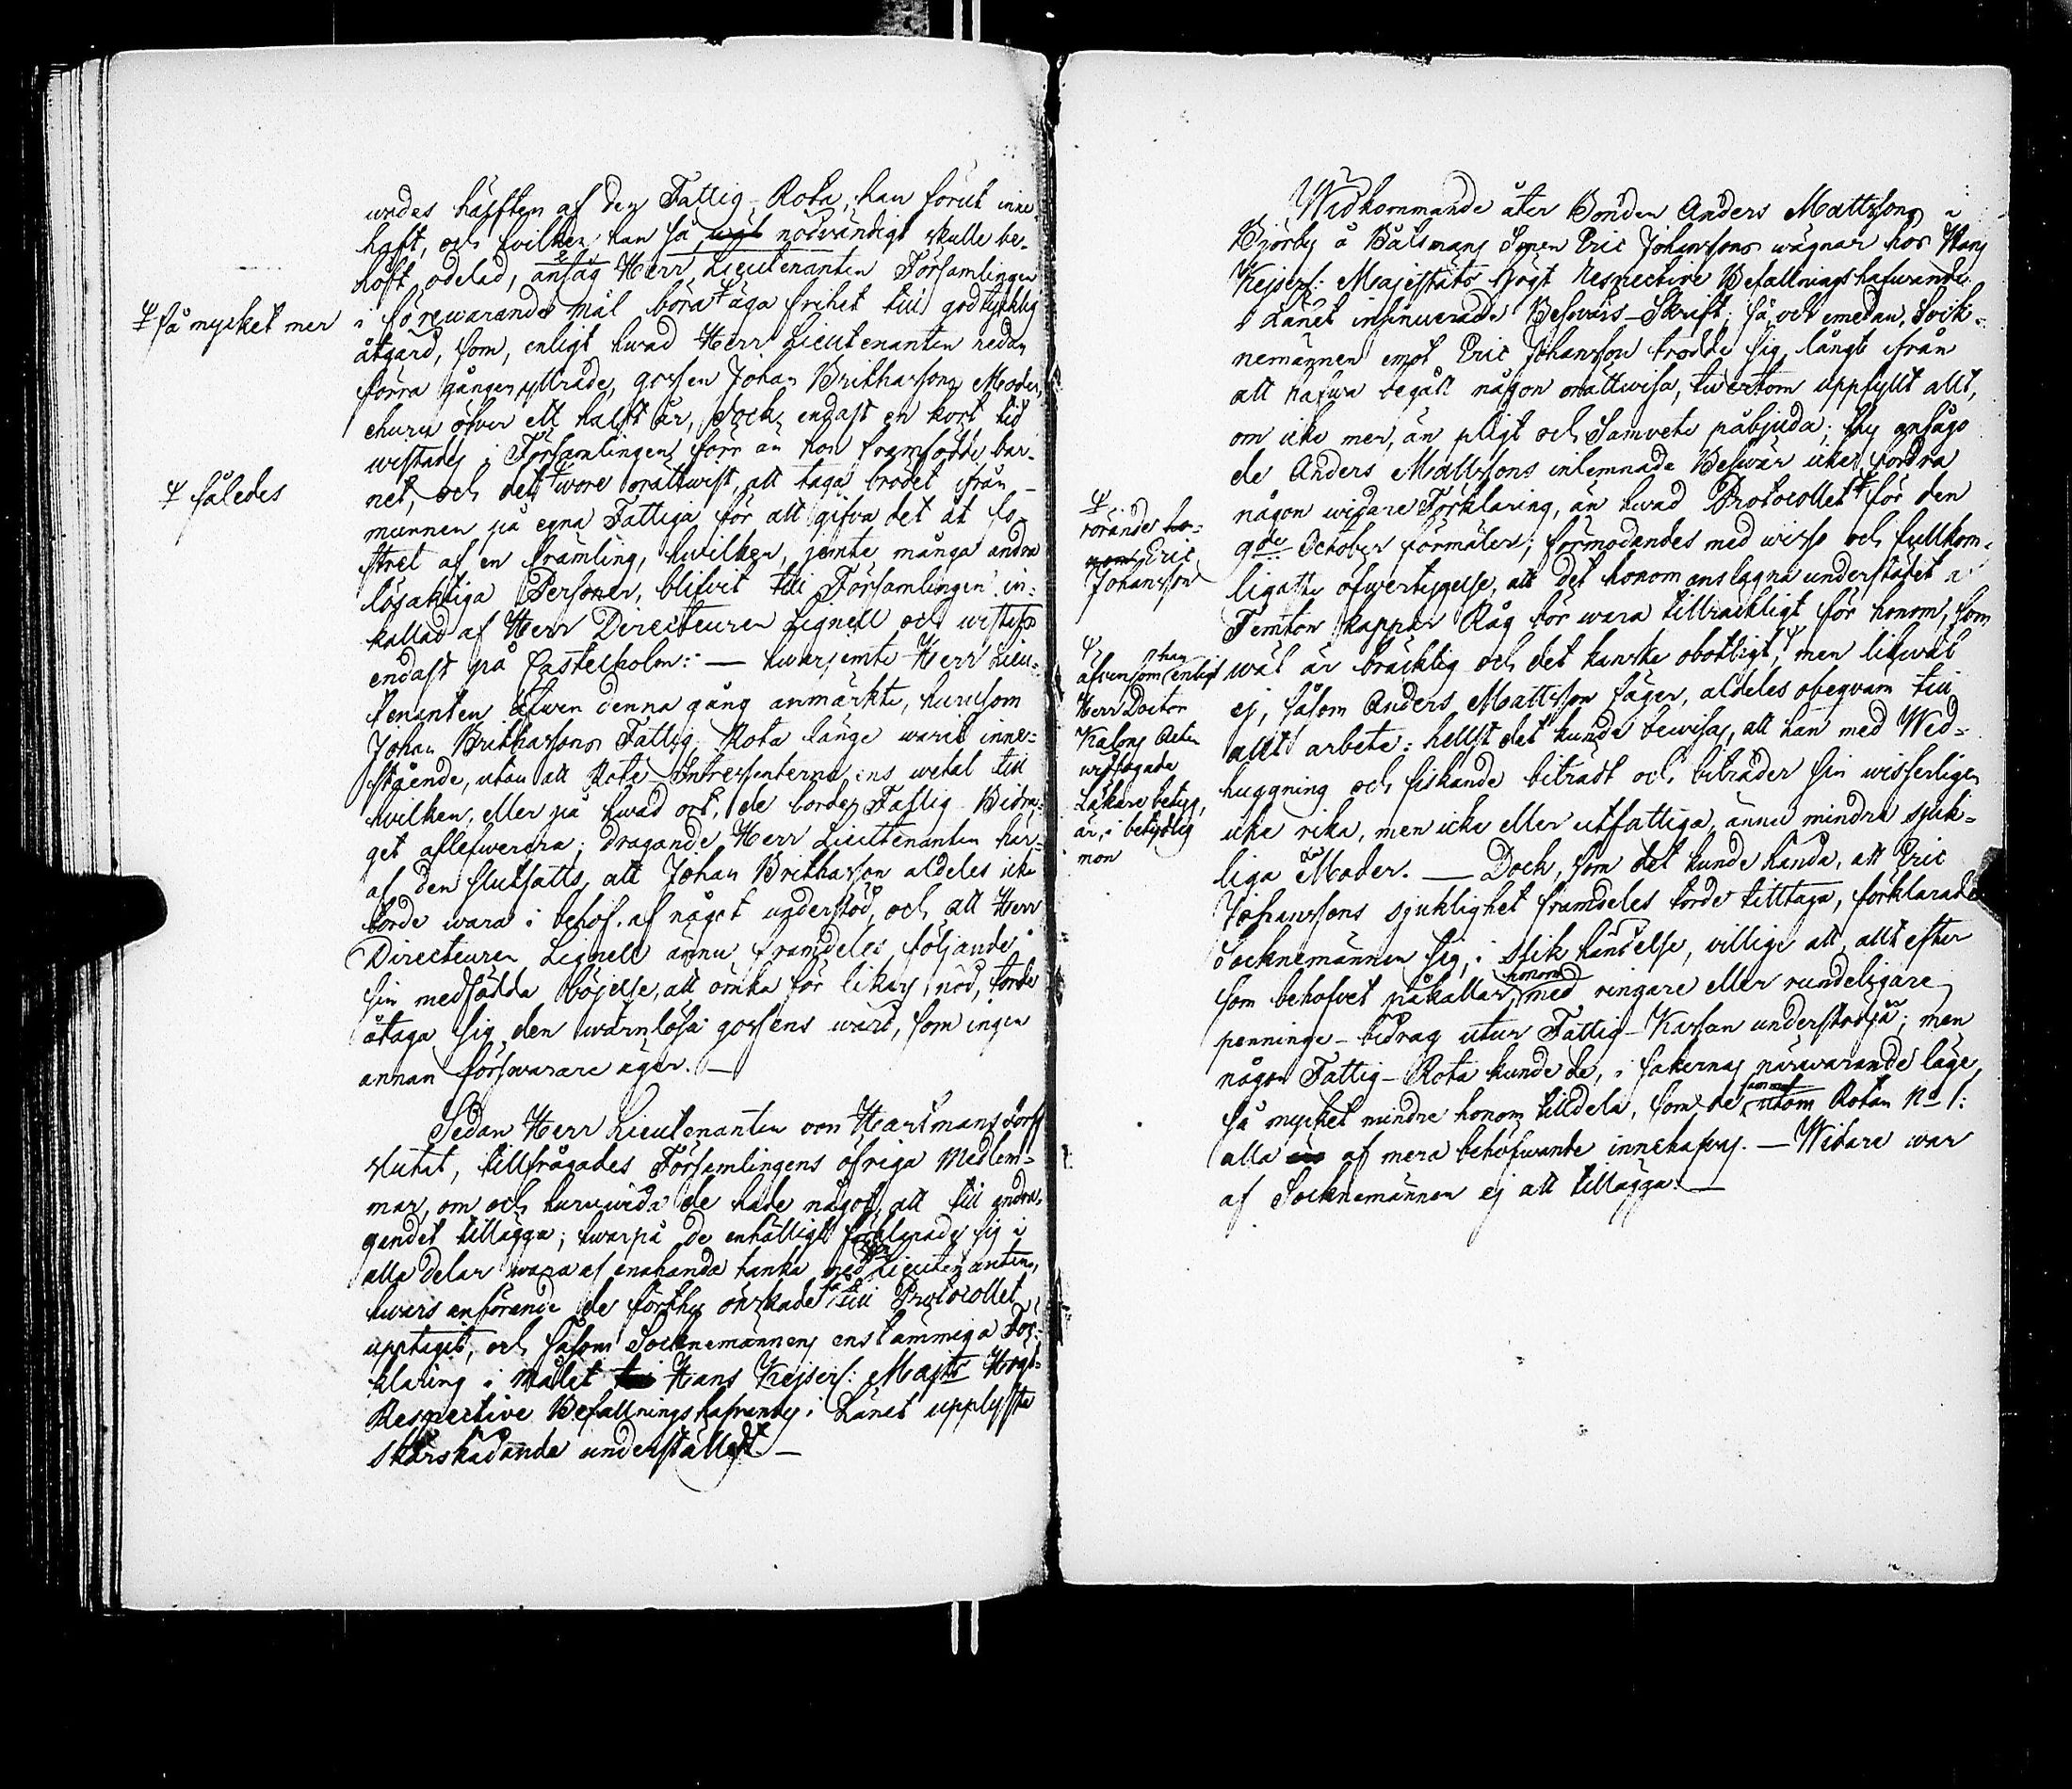 wades hälften af den Fattig-Rota, han förut inne-
haft, och hvilken han så wäl nödvändigt skulle be-
höft odelad, ansåg Herr Lieutenanten Församlingen
i förewarande mål böra ⸸ äga frihet till godtycklig
⸸ så mycket mer
åtgärd, som, enligt hwad Herr Lieutenanten redan
förra gången yttrade, gossen Johan Brithassons Moder,
ehuru öfver ett halft år, dock endast en kort tid
wistades i Församlingen förr än hon framfödde bar-
net, och det ⸸ wore orättwist att taga brödet ifrån
⸸ således
munnen på egna Fattiga för att gifva det åt fo-
stret af en främling, hwilken, jemte många andra
lösaktiga Personer, blifvit till Församlingen in-
kallad af Herr Directeuren Lignell och wistats
endast på Castelholm: — hwarjemte Herr Lieu-
tenanten äfwen denna gång anmärkte, hurusom
Johan Brithassons Fattig-Rota länge warit inne-
stående, utan att Rote-Intressenterna ens wetat till
hvilken, eller på hwad ort, de borde Fattig-Bidra-
get aflefwerera; dragande Herr Lieutenanten här-
af den slutsatts, att Johan Brithasson aldeles icke
torde wara i behof af något understöd, och att Herr
Directeuren Lignell ännu framdeles, följande
sin medfödda böjelse, att ömka för likars nöd, torde
åtaga sig den wärnlösa gossens wård, som ingen
annan försvarare äger. —
Sedan Herr Lieutenanten von Hartmansdorff
slutat, tillfrågades Församlingens öfriga Medlem-
mar, om och huruwida de hade något, att till andra-
gandet tillägga; hwarpå de enhälligt förklarade sig i
alla delar wara af enahanda tanka med Herr Lieutenanten,
hwars anförande de förthy önskade till Protocollet
upptaget, och såsom Socknemännens enstämmiga För-
klaring i målet Hans Kejserl: Majts Högt-
Respective Befallningshafvandes i Länet upplysta
skärskådande underställdt —
Widkommande åter Bonden Anders Mattssons i
Björby å Båtsmans Sonen Eric Johanssons wägnar hos Hans
Kejserl: Majestäts Högt Respective Befallningshafwande
i Länet insinuerade Beswärs-Skrift; så och emedan, Sock-
nemännen emot Eric Johansson trodde sig långt ifrån
att hafwa begått någon orättwisa, twertom uppfyllt allt,
om icke mer, än pligt och Samvete påbjuda; ty ansågo
de Anders Mattssons inlemnade Beswär icke fordra
någon widare Förklaring, än hwad Protocollet ⸸ för den
⸸
rörande ho-
nom Eric
Johansson
9de October förmäler; förmodandes med wisse och fullkom-
ligaste öfwertygelse, att det honom anslagna understödet a
Femton kappar Råg bör wara tillräckligt för honom, som
wäl är bräcklig och det kanske obotligt, ⸸ men likwäl
⸸
äfvensom han enligt
Herr Doctor
Kalms
wisfogade
Läkare betyg,
är, i betydlig
mon
ej, såsom Anders Mattsson säger, aldeles obeqväm till
allt arbete: hellst det kunde bewisas, att han med Wed-
huggning och fiskande biträdt och biträder sin wisserligen
icke rika, men icke eller utfattiga, ännu mindre sjuk-
liga Moder. — Dock, som det kunde hända, att Eric
Johanssons sjuklighet framdeles torde tilltaga, förklarade
Socknemännen sig, i slik händelse, villige att, allt efter
som behofvet påkallar, honom med ringare eller rundeligare
penninge-bidrag utur Fattig-Kassan understödja; men
någon Fattig-Rota kunde de, i sakernas närwarande läge,
så mycket mindre honom tilldela, som de samma utom Rotan No 1:
alla af mera behöfwande innehafvas. — Widare war
af Socknemännen ej att tillägga. —